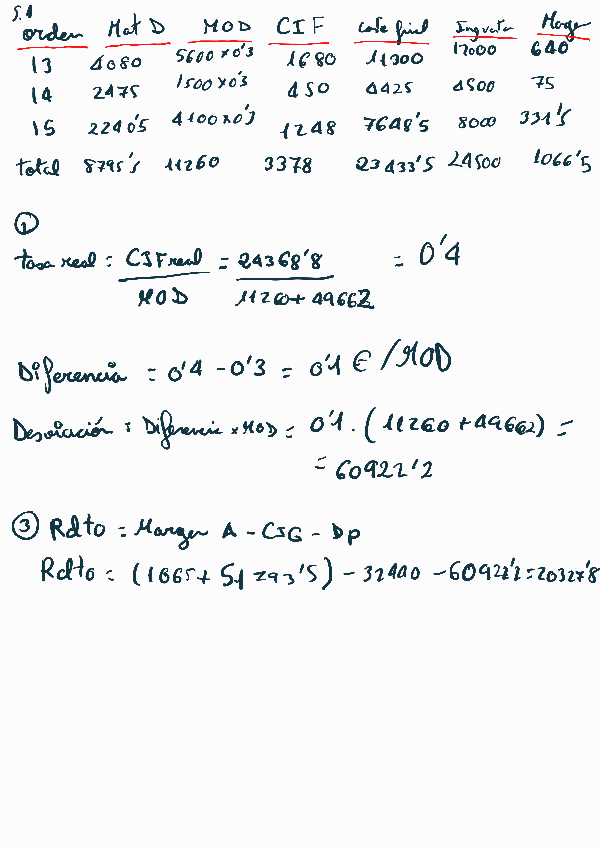 5.1
orden Mat D MOD CIF coste final Ingresos Margen
13 4080 5600x0'3 1680 11300 12000 640
14 2475 1500x0'3 450 4425 4500 75
15 2240'5 4100x0'3 1248 7648'5 8000 331'5
total 8795'5 11260 3378 23433'5 24500 1066'5
①
tasa real = CIF real = 24368'8 = 0'4
MOD 11260+49662
Diferencia = 0'4 - 0'3 = 0'1 € /MOD
Desviación : Diferencia x MOD = 0'1 . (11260 + 49662) =
= 60922'2
③ Rdto = Margen A - CIG - Dp
Rdto = (1665+ 51293'5) - 32440 - 60922'2=20327'8